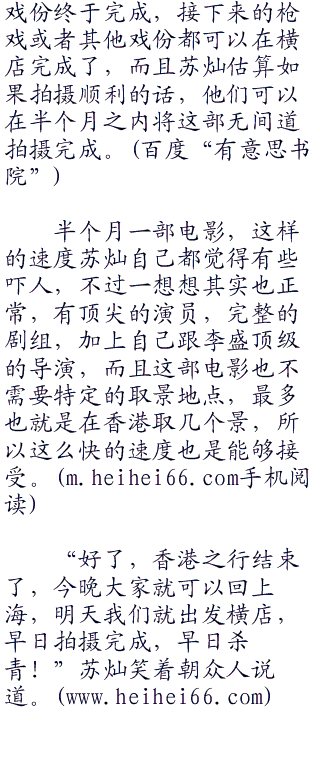 戏份终于完成，接下来的枪
戏或者其他戏份都可以在横
店完成了，而且苏灿估算如
果拍摄顺利的话，他们可以
在半个月之内将这部无间道
拍摄完成。(百度“有意思书
院”)
半个月一部电影，这样
的速度苏灿自己都觉得有些
吓人，不过一想想其实也正
常，有顶尖的演员，完整的
剧组，加上自己跟李盛顶级
的导演，而且这部电影也不
需要特定的取景地点，最多
也就是在香港取几个景，所
以这么快的速度也是能够接
受。(m.heihei66.com手机阅
读)
“好了，香港之行结束
了，今晚大家就可以回上
海，明天我们就出发横店，
早日拍摄完成，早日杀
青！”苏灿笑着朝众人说
道。(www.heihei66.com)